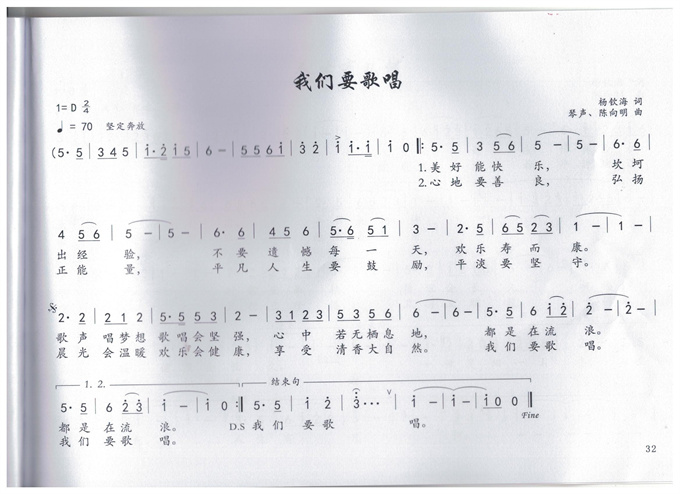 我们要歌唱
1=D 2/4
杨钦海 词
♩=70 坚定奔放
琴声、陈向明 曲
(5·5 | 3 4 5 | i·2 i 5 | 6 - | 5 5 6 i | 3 2 | i i·i | i 0 ‖: 5·5 | 3 5 6 | 5 - | 5 - | 6·6 |
1.美好能快乐，坎坷
2.心地要善良，弘扬
4 5 6 | 5 - | 5 - | 6·6 | 4 5 6 | 5·6 5 1 | 3 - | 2·5 | 6 5 2 3 | 1 - | 1 - |
出经验，不要遗憾每一天，欢乐寿而康。
正能量，平凡人生要鼓励，平淡要坚守。
2·2 | 2 1 2 | 5·5 5 3 | 2 - | 3 1 2 3 | 5 3 5 | 3 5 6 6 | 5 - | 5·5 | 6 i 2 | 2 - | 2 - |
歌声唱梦想歌唱会坚强，心中若无栖息地，都是在流浪。
晨光会温暖欢乐会健康，享受清香大自然。我们要歌唱。
1. 2.
结束句
5·5 | 6 2 3 | i - | i 0 :‖ 5·5 | i 2 | 3··· | i - | i - | i 0 0 ‖
都是在流浪。 D.S 我们要歌唱。 Fine
我们要歌唱。
32